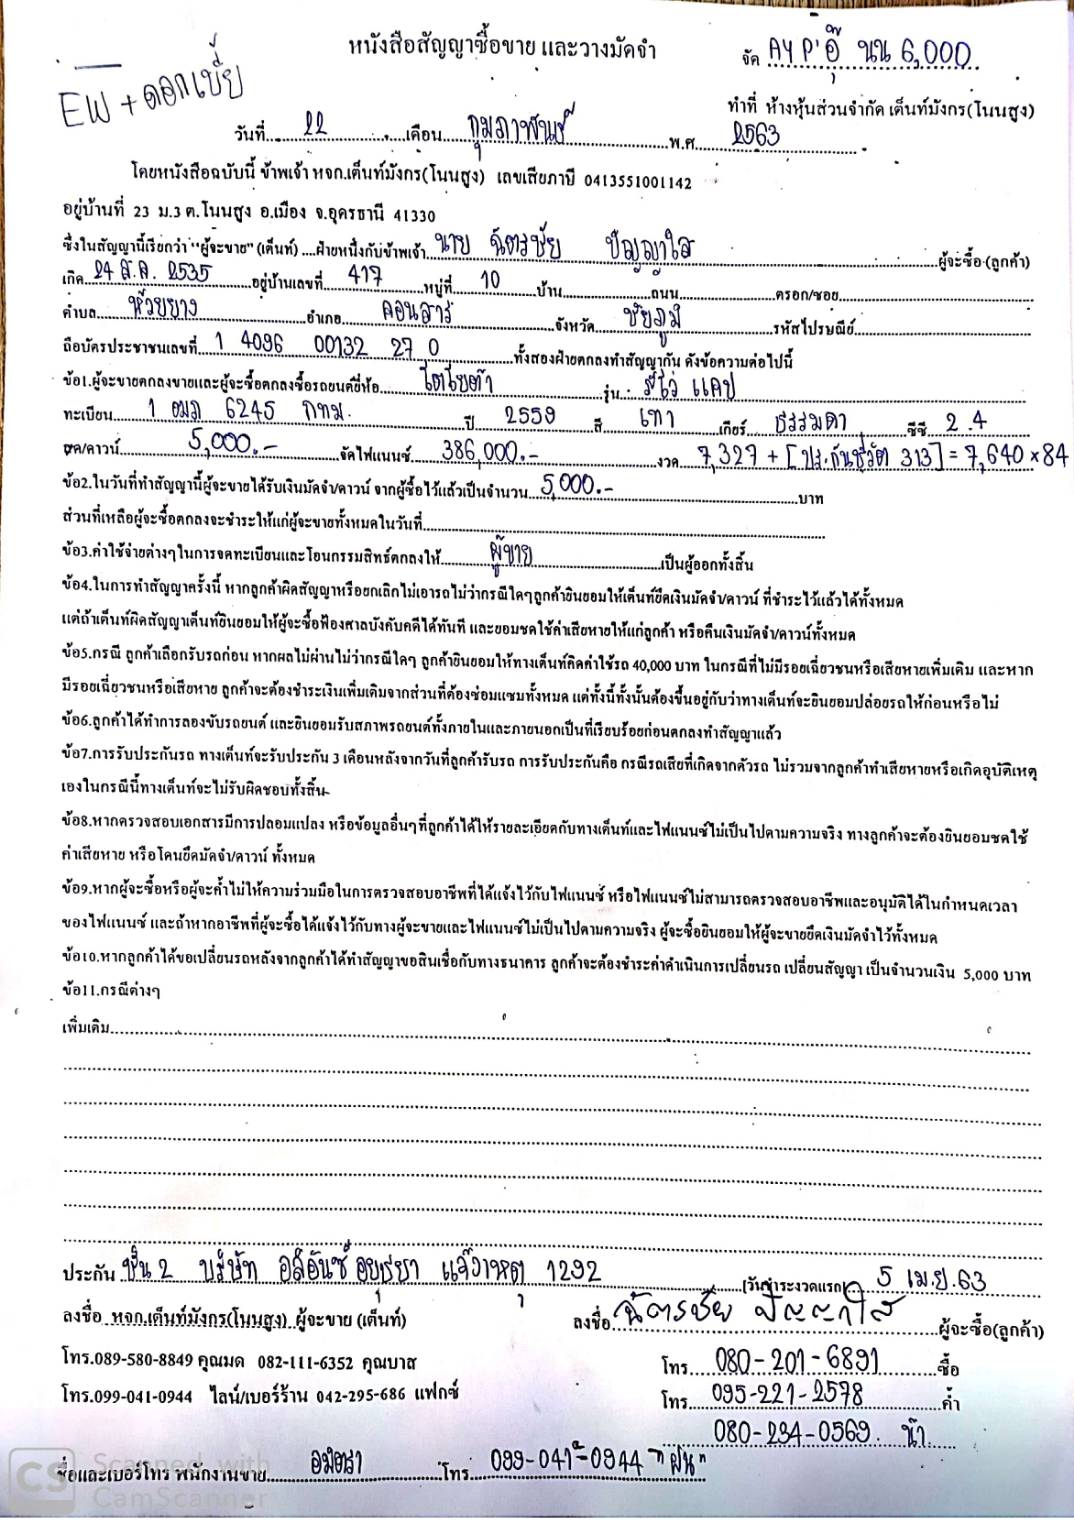 หนังสือสัญญาซื้อขาย และวางมัดจำ
จัด AY P'อุ๊ นน 6,000
EW + ดอกเบี้ย
ทำที่ ห้างหุ้นส่วนจำกัด เต็นท์มังกร(โนนสูง)
วันที่ 22 เดือน กุมภาพันธ์ พ.ศ. 2563
โดยหนังสือฉบับนี้ ข้าพเจ้า หจก.เต็นท์มังกร(โนนสูง) เลขเสียภาษี 0413551001142
อยู่บ้านที่ 23 ม.3 ต.โนนสูง อ.เมือง จ.อุดรธานี 41330
ซึ่งในสัญญานี้เรียกว่า "ผู้จะขาย" (เต็นท์) ....ฝ่ายหนึ่งกับข้าพเจ้า นาย ฉัตรชัย ปัญญาใส ผู้จะซื้อ (ลูกค้า)
เกิด 24 ส.ค. 2535 อยู่บ้านเลขที่ 417 หมู่ที่ 10 บ้าน ถนน ตรอก/ซอย
ตำบล ห้วยยาง อำเภอ คอนสาร จังหวัด ชัยภูมิ รหัสไปรษณีย์
ถือบัตรประชาชนเลขที่ 1 4096 00132 27 0 ทั้งสองฝ่ายตกลงทำสัญญากัน ดังข้อความต่อไปนี้
ข้อ1.ผู้จะขายตกลงขายและผู้จะซื้อตกลงซื้อรถยนต์ยี่ห้อ โตโยต้า รุ่น รีโว่ แคป
ทะเบียน 1 ฒภ 6245 กทม. ปี 2559 สี เทา เกียร์ ธรรมดา ซีซี 2.4
ชุด/ดาวน์ 5,000.- จัดไฟแนนซ์ 386,000.- งวด 7,327 + [ปร.กันชีวิต 313] = 7,640 x 84
ข้อ2.ในวันที่ทำสัญญานี้ผู้จะขายได้รับเงินมัดจำ/ดาวน์ จากผู้ซื้อไว้แล้วเป็นจำนวน 5,000.- บาท
ส่วนที่เหลือผู้จะซื้อตกลงจะชำระให้แก่ผู้จะขายทั้งหมดในวันที่
ข้อ3.ค่าใช้จ่ายต่างๆในการจดทะเบียนและโอนกรรมสิทธ์ตกลงให้ ผู้ขาย เป็นผู้ออกทั้งสิ้น
ข้อ4.ในการทำสัญญาครั้งนี้ หากลูกค้าผิดสัญญาหรือยกเลิกไม่เอารถไม่ว่ากรณีใดๆลูกค้ายินยอมให้เต็นท์ยึดเงินมัดจำ/ดาวน์ ที่ชำระไว้แล้วได้ทั้งหมด
แต่ถ้าเต็นท์ผิดสัญญาเต็นท์ยินยอมให้ผู้จะซื้อฟ้องศาลบังคับคดีได้ทันที และยอมชดใช้ค่าเสียหายให้แก่ลูกค้า หรือคืนเงินมัดจำ/ดาวน์ทั้งหมด
ข้อ5.กรณี ลูกค้าเลือกรับรถก่อน หากผลไม่ผ่านไม่ว่ากรณีใดๆ ลูกค้ายินยอมให้ทางเต็นท์คิดค่าใช้รถ 40,000 บาท ในกรณีที่ไม่มีรอยเฉี่ยวชนหรือเสียหายเพิ่มเติม และหาก
มีรอยเฉี่ยวชนหรือเสียหาย ลูกค้าจะต้องชำระเงินเพิ่มเติมจากส่วนที่ต้องซ่อมแซมทั้งหมด แต่ทั้งนี้ทั้งนั้นต้องขึ้นอยู่กับว่าทางเต็นท์จะยินยอมปล่อยรถให้ก่อนหรือไม่
ข้อ6.ลูกค้าได้ทำการลองขับรถยนต์ และยินยอมรับสภาพรถยนต์ทั้งภายในและภายนอกเป็นที่เรียบร้อยก่อนตกลงทำสัญญาแล้ว
ข้อ7.การรับประกันรถ ทางเต็นท์จะรับประกัน 3 เดือนหลังจากวันที่ลูกค้ารับรถ การรับประกันคือ กรณีรถเสียที่เกิดจากตัวรถ ไม่รวมจากลูกค้าทำเสียหายหรือเกิดอุบัติเหตุ
เองในกรณีนี้ทางเต็นท์จะไม่รับผิดชอบทั้งสิ้น
ข้อ8.หากตรวจสอบเอกสารมีการปลอมแปลง หรือข้อมูลอื่นๆที่ลูกค้าได้ให้รายละเอียดกับทางเต็นท์และไฟแนนซ์ไม่เป็นไปตามความจริง ทางลูกค้าจะต้องยินยอมชดใช้
ค่าเสียหาย หรือโดนยึดมัดจำ/ดาวน์ ทั้งหมด
ข้อ9.หากผู้จะซื้อหรือผู้จะค้ำไม่ให้ความร่วมมือในการตรวจสอบอาชีพที่ได้แจ้งไว้กับไฟแนนซ์ หรือไฟแนนซ์ไม่สามารถตรวจสอบอาชีพและอนุมัติได้ในกำหนดเวลา
ของไฟแนนซ์ และถ้าหากอาชีพที่ผู้จะซื้อได้แจ้งไว้กับทางผู้จะขายและไฟแนนซ์ไม่เป็นไปตามความจริง ผู้จะซื้อยินยอมให้ผู้จะขายยึดเงินมัดจำไว้ทั้งหมด
ข้อ10.หากลูกค้าได้ขอเปลี่ยนรถหลังจากลูกค้าได้ทำสัญญาขอสินเชื่อกับทางธนาคาร ลูกค้าจะต้องชำระค่าดำเนินการเปลี่ยนรถ เปลี่ยนสัญญา เป็นจำนวนเงิน 5,000 บาท
ข้อ11.กรณีต่างๆ
เพิ่มเติม
ประกัน ชั้น 2 บริษัท อลิอันซ์ อยุธยา แจ้งเหตุ 1292 (วันชำระงวดแรก) 5 เม.ย. 63
ลงชื่อ หจก.เต็นท์มังกร(โนนสูง) ผู้จะขาย (เต็นท์) ลงชื่อ ฉัตรชัย ปัญญาใส ผู้จะซื้อ(ลูกค้า)
โทร.089-580-8849 คุณมด 082-111-6352 คุณบาส โทร. 080-201-6891 ซื้อ
โทร.099-041-0944 ไลน์/เบอร์ร้าน 042-295-686 แฟกซ์ โทร. 095-221-2578 ค้ำ
080-234-0569 น้า
ชื่อและเบอร์โทร พนักงานขาย อมิตรา โทร. 099-041-0944 "ฝน"
CS Scanned with
CamScanner